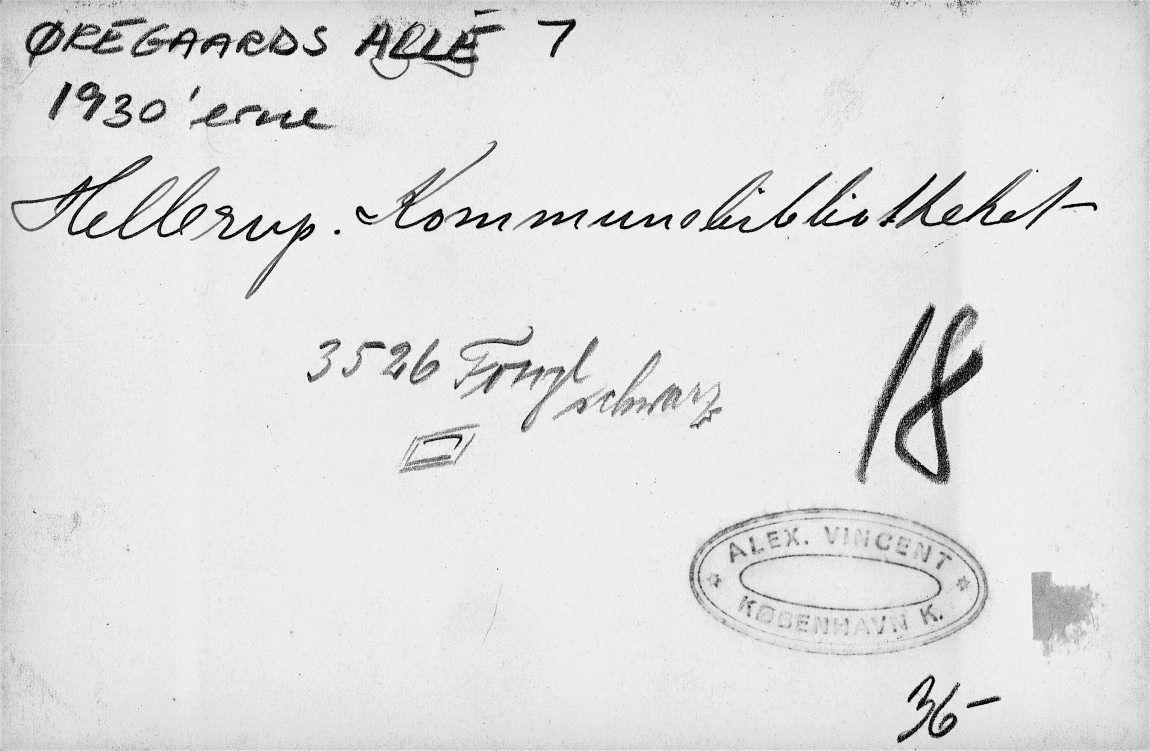 ØREGAARDS ALLÉ 7
1930'erne
Hellerup. Kommunebibliotheket
3526
schwarz
18
ALEX. VINCENT
KØBENHAVN K.
36-